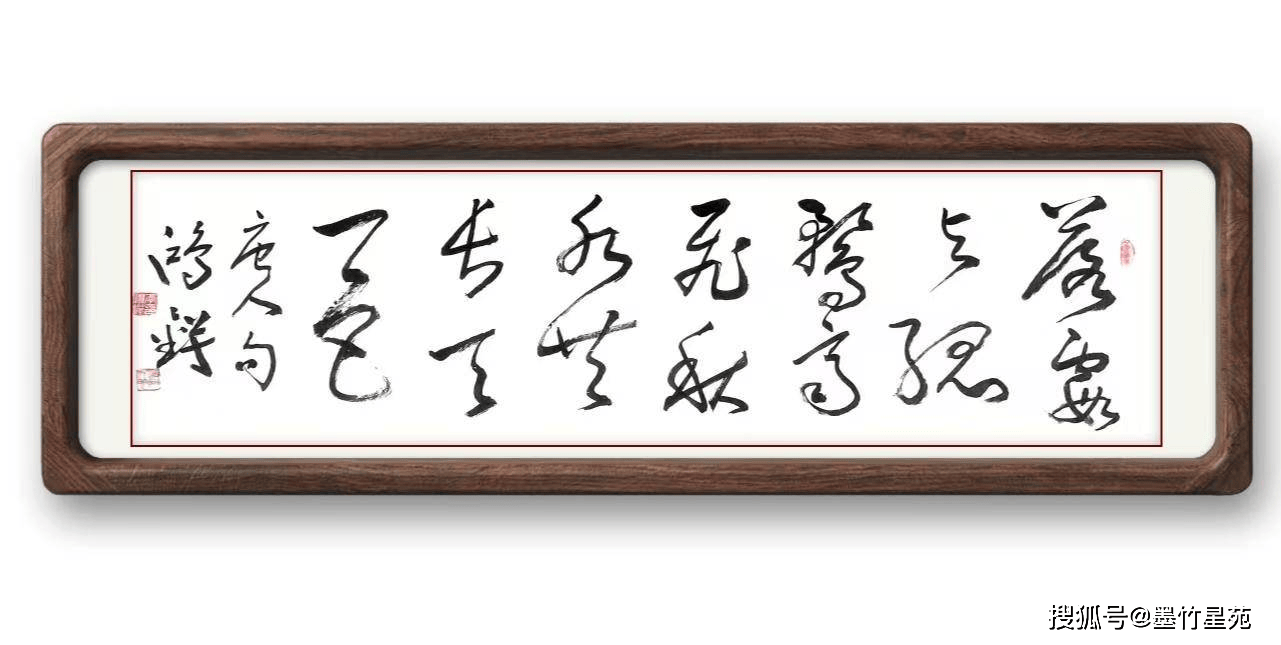 落霞
与孤
鹜齐
飞秋
水共
长天
一色
唐人句
鸿
搜狐号@墨竹星苑